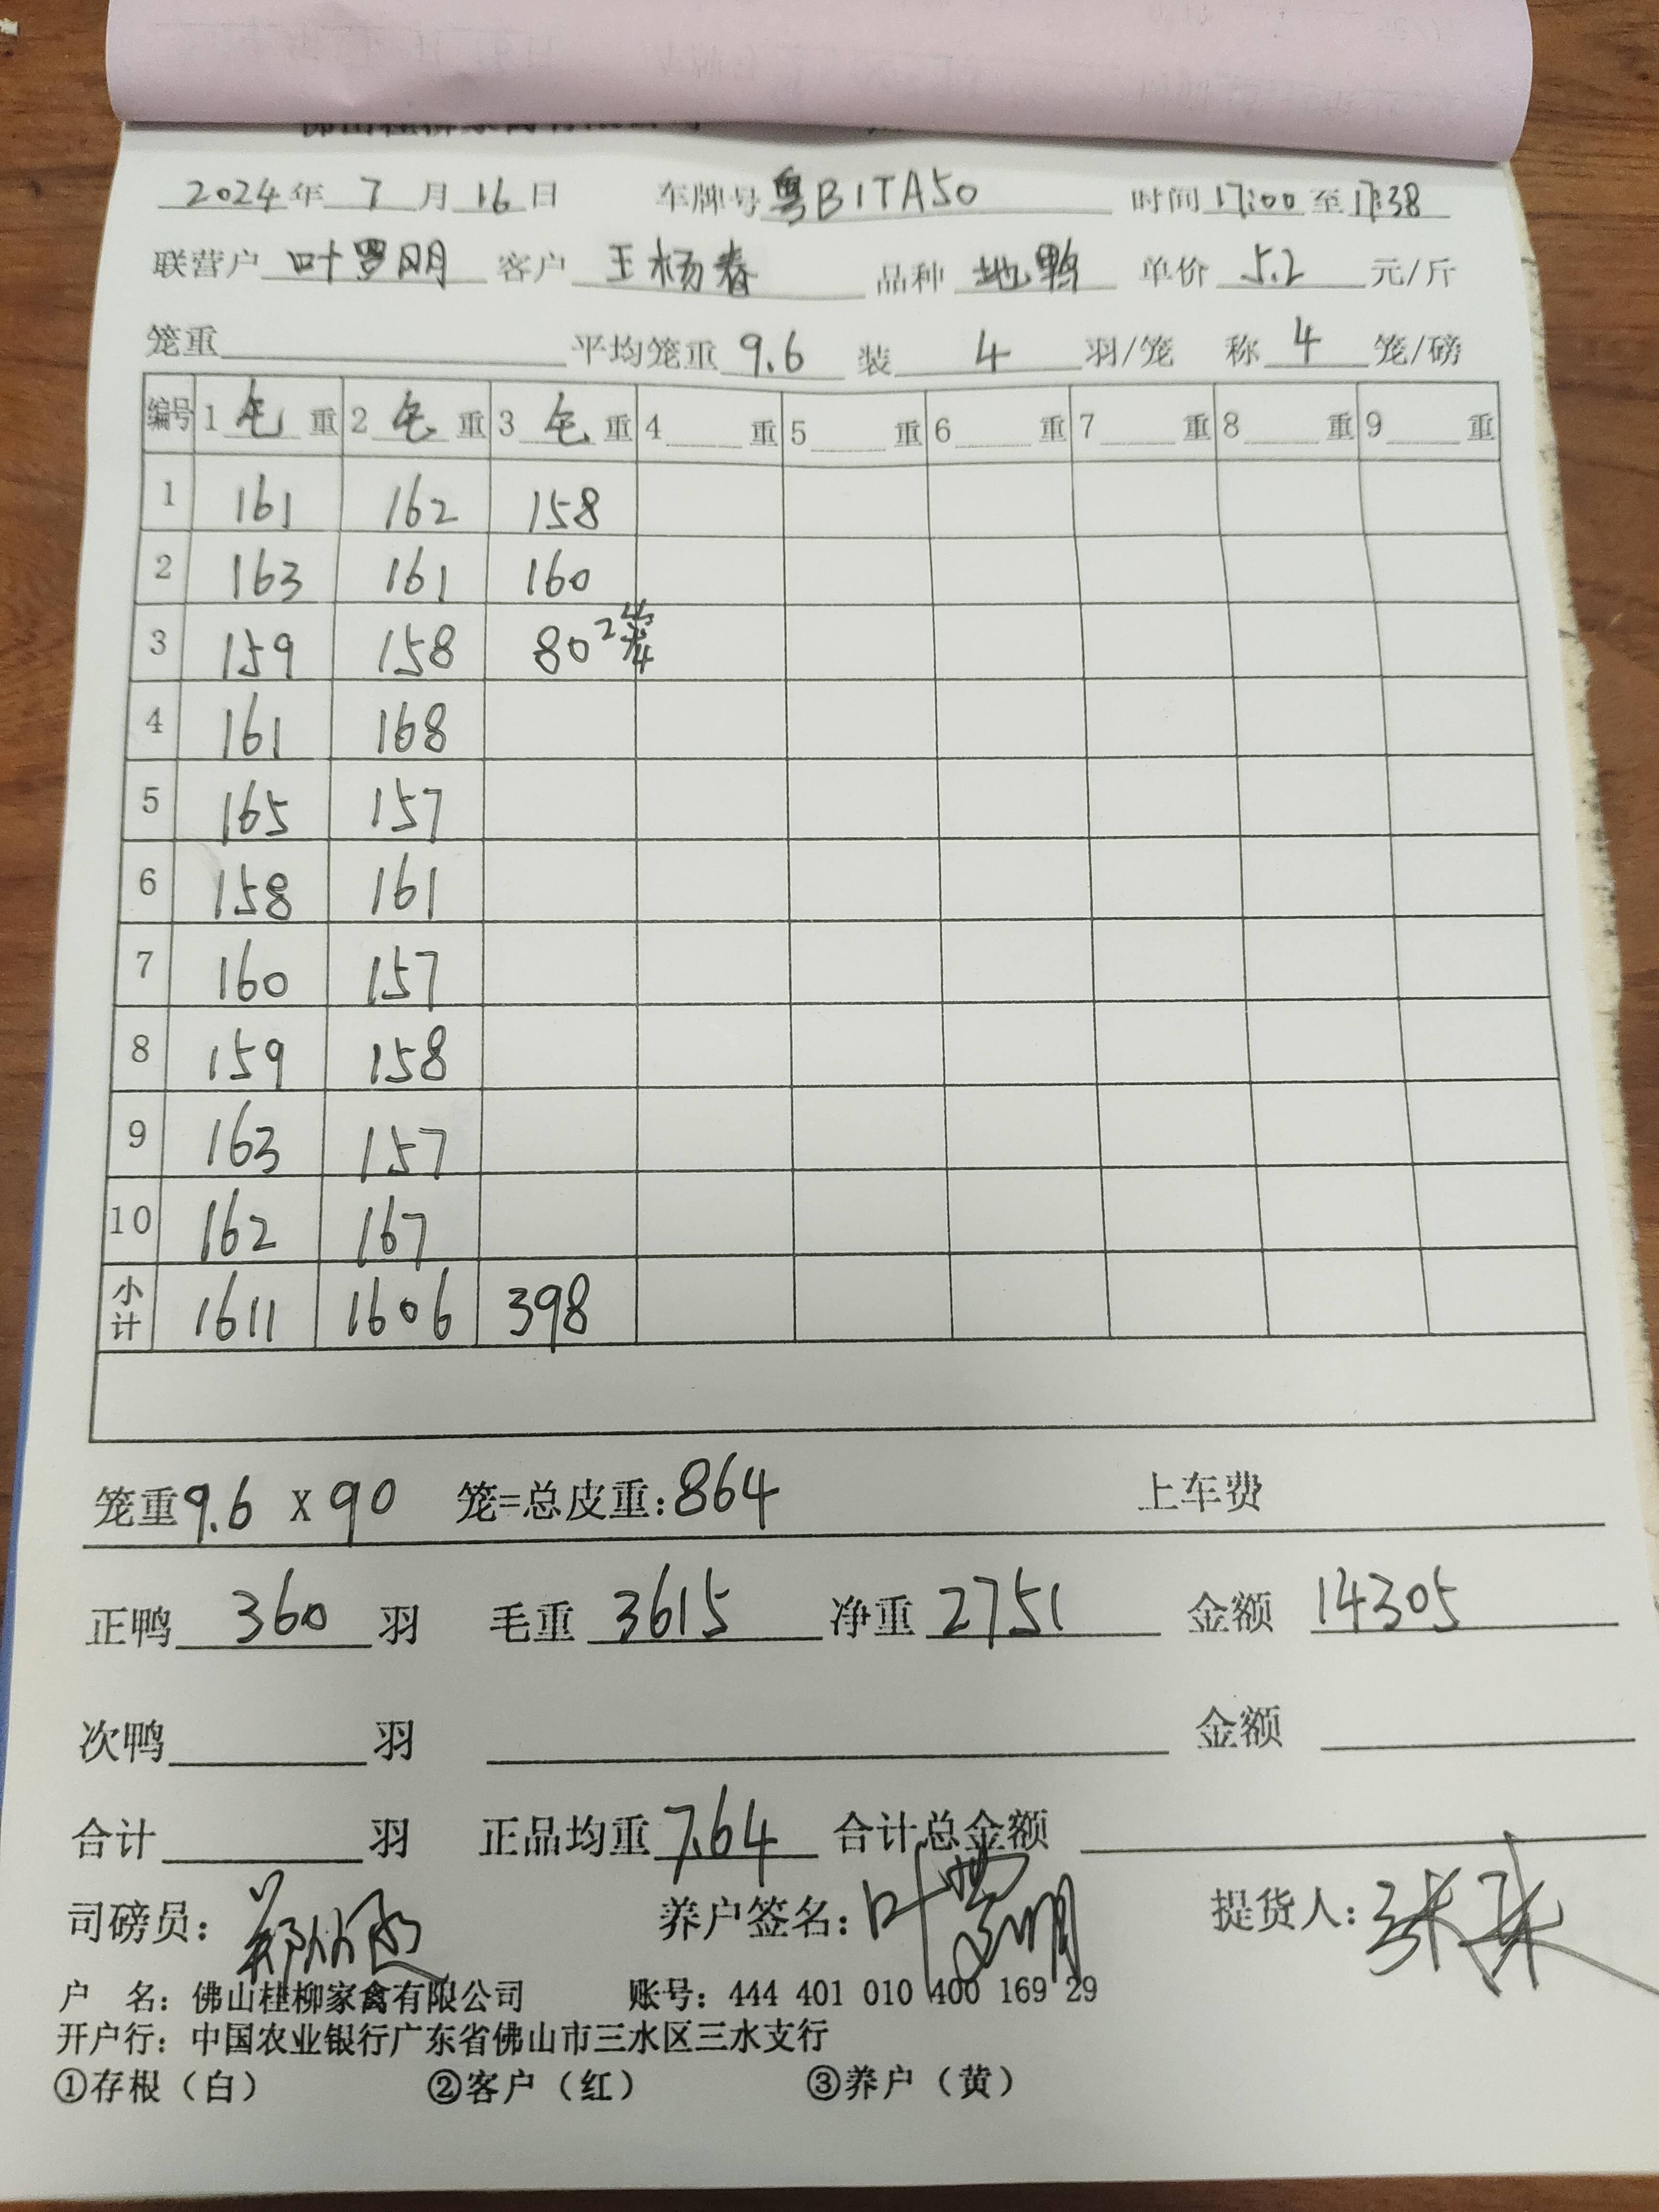 2024年 7 月 16 日 车牌号 粤B1TA50 时间 17:00 至 17:38
联营户 叶罗明 客户 王杨春 品种 地鸭 单价 5.2 元/斤
笼重 平均笼重 9.6 装 4 羽/笼 称 4 笼/磅
编号 1 毛 重 2 毛 重 3 毛 重 4 重 5 重 6 重 7 重 8 重 9 重
1 161 162 158
2 163 161 160
3 159 158 80 2笼
4 161 168
5 165 157
6 158 161
7 160 157
8 159 158
9 163 157
10 162 167
小计 1611 1606 398
笼重 9.6 X 90 笼=总皮重: 864 上车费
正鸭 360 羽 毛重 3615 净重 2751 金额 14305
次鸭 羽 金额
合计 羽 正品均重 7.64 合计总金额
司磅员: 养户签名: 叶罗明 提货人:
户 名: 佛山桂柳家禽有限公司 账号: 444 401 010 400 169 29
开户行: 中国农业银行广东省佛山市三水区三水支行
①存根（白） ②客户（红） ③养户（黄）